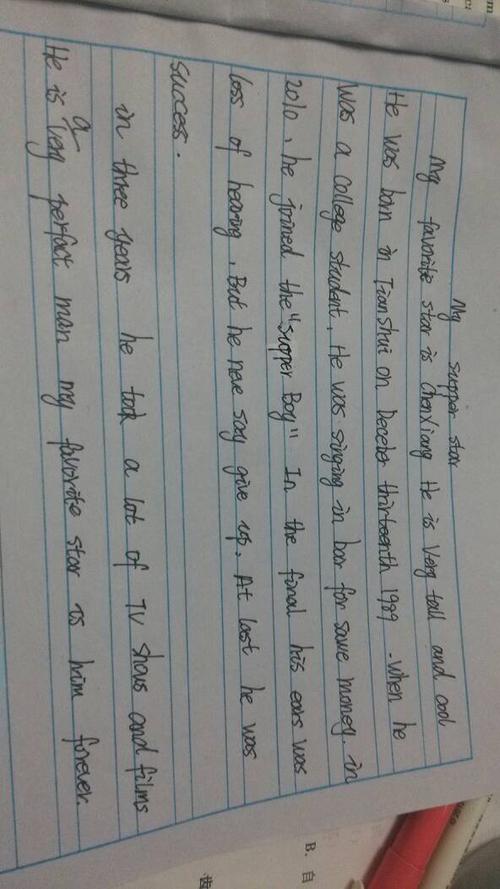 My supper star
My favorite star is ChenXiang He is Very tall and cool
He was born in TianShui on Deceber thirteenth 1989 . when he
was a college student. He was singing in bar for save money. in
2010, he joined the "Supper Boy" In the final his ears was
loss of hearing. But he neve say give up. At last he was
success.
in three years he took a lot of TV shows and films
He is a very perfect man my favorite star is him forever.
B. 自